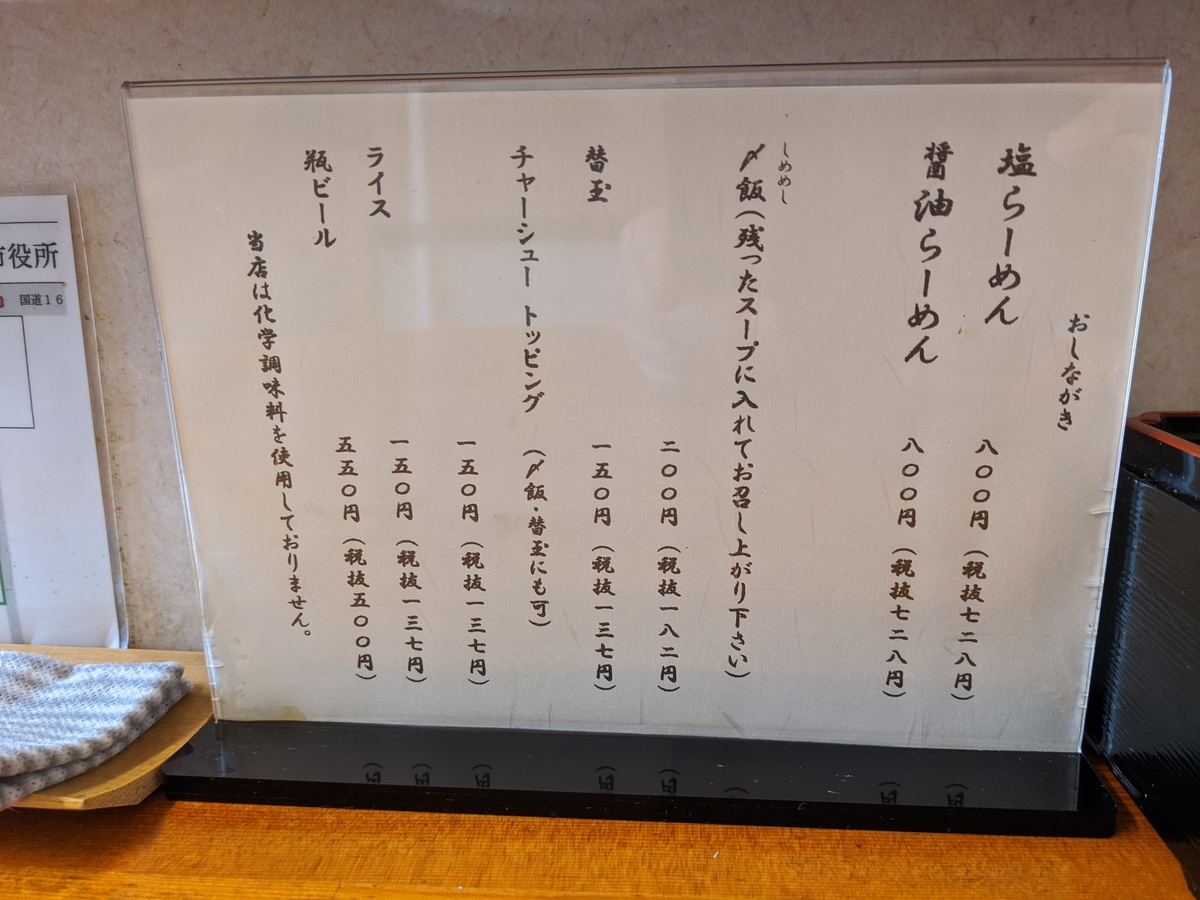 おしながき
塩らーめん 八〇〇円(税抜七二八円)
醤油らーめん 八〇〇円(税抜七二八円)
しめめし
〆飯(残ったスープに入れてお召し上がり下さい)
二〇〇円(税抜一八二円)
替玉 一五〇円(税抜一三七円)
チャーシュー トッピング (〆飯・替玉にも可)
一五〇円(税抜一三七円)
ライス 一五〇円(税抜一三七円)
瓶ビール 五五〇円(税抜五〇〇円)
当店は化学調味料を使用しておりません。
市役所
国道16